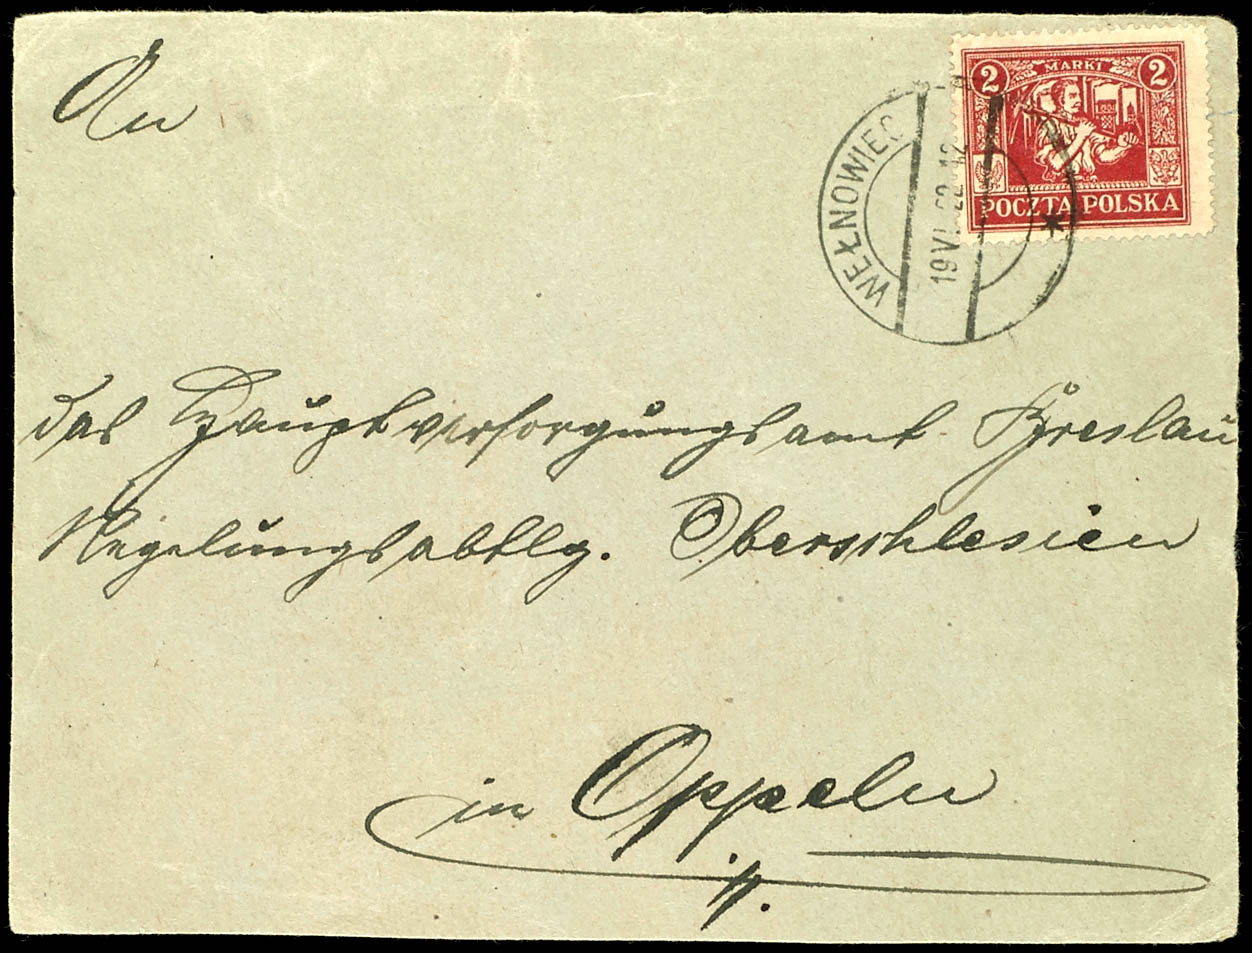 2 MARKI 2
POCZTA POLSKA
WEŁNOWIEC
19 VI 22 12
An
das Hauptversorgungsamt Breslau
Regelungsabtlg. Oberschlesien
in Oppeln